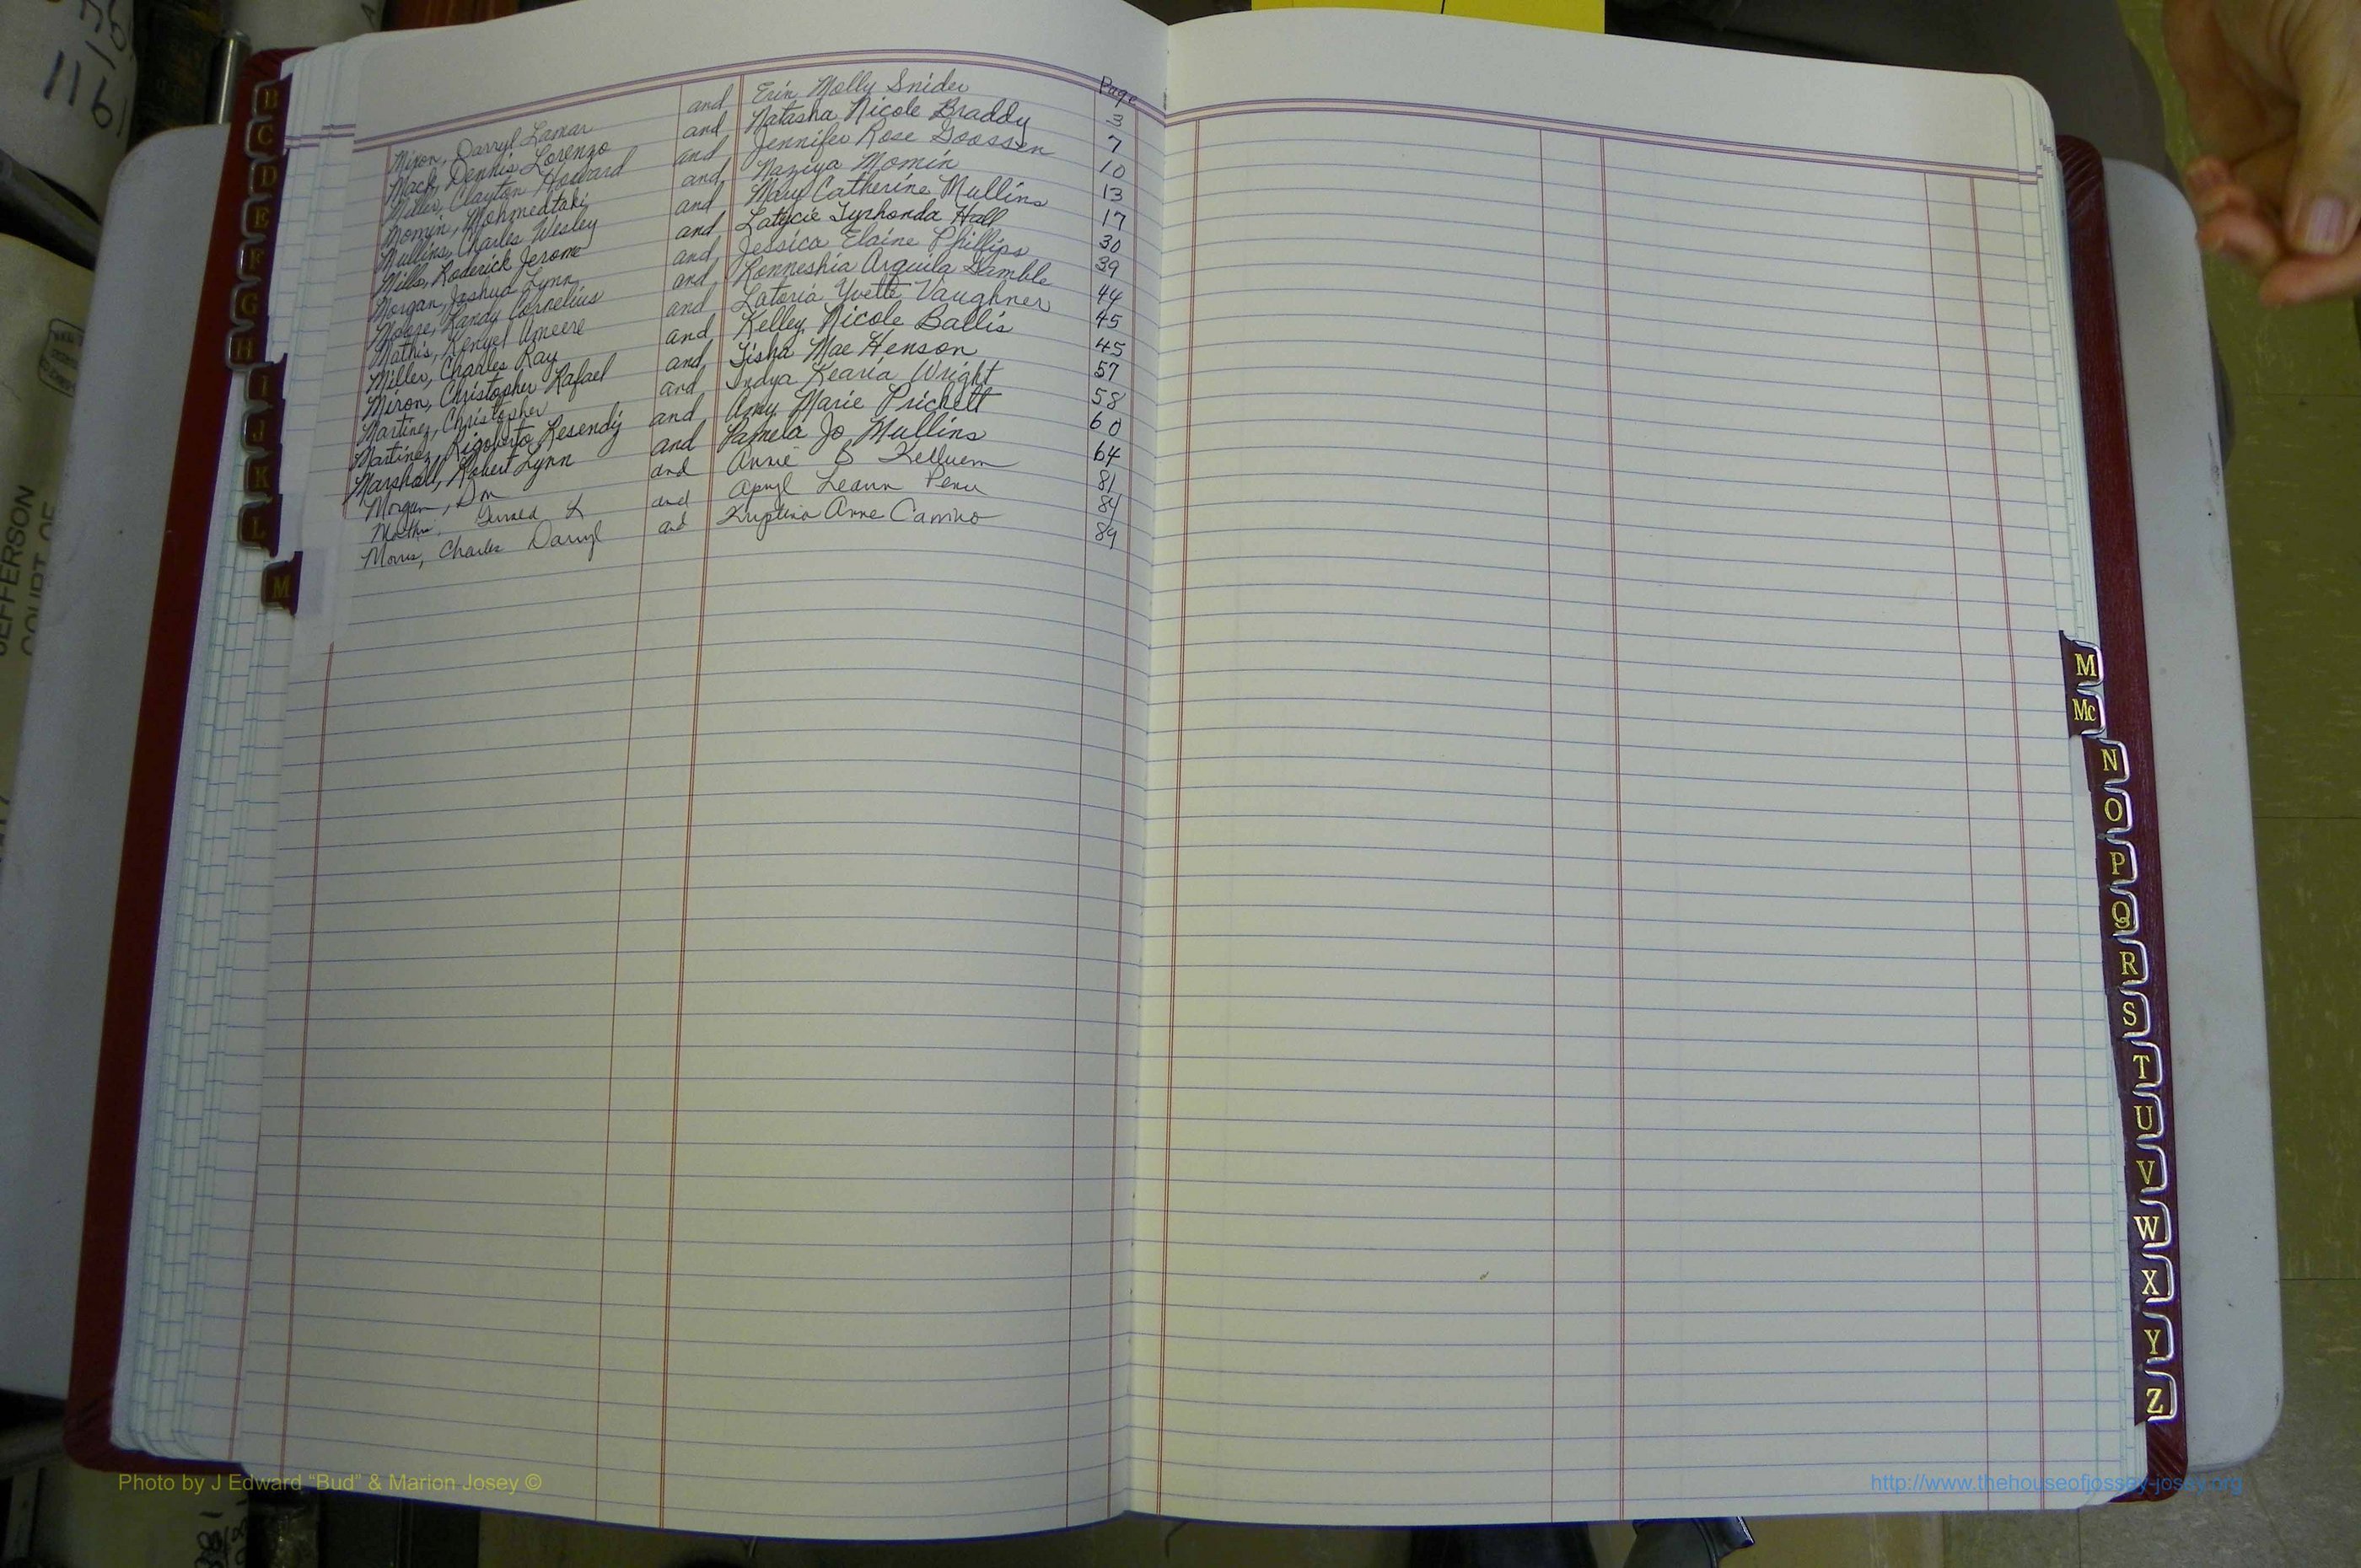 Page
Mixon, Darryl Lamar and Erin Molly Snider 3
Mack, Dennis Lorenzo and Natasha Nicole Braddy 7
Miller, Clayton Howard and Jennifer Rose Goossen 10
Momin, Mohmedtaki and Naziya Momin 13
Mullins, Charles Wesley and Mary Catherine Mullins 17
Mills, Roderick Jerome and Latycie Tyrhonda Hall 30
Morgan, Joshua Lynn and Jessica Elaine Phillips 39
Moore, Randy Cornelius and Ronneshia Arquila Gamble 44
Mathis, Kenyel Ameere and Latoria Yvette Vaughner 45
Miller, Charles Ray and Kelley Nicole Ballis 45
Miron, Christopher Rafael and Tisha Mae Henson 57
Martinez, Christopher and Indya Kearia Wright 58
Martinez, Rigoberto Resendiz and Amy Marie Prichett 60
Marshall, Robert Lynn and Pamela Jo Mullins 64
Morgan, and Annie B 81
L and Apryl Leann 84
Morris, Charles Darryl and Anne 89
B
C
D
E
F
G
H
I
J
K
L
M
M
Mc
N
O
P
Q
R
S
T
U
V
W
X
Y
Z
JEFFERSON
COURT OF
1161
Photo by J Edward “Bud” & Marion Josey ©
http://www.thehouseofjossey-josey.org